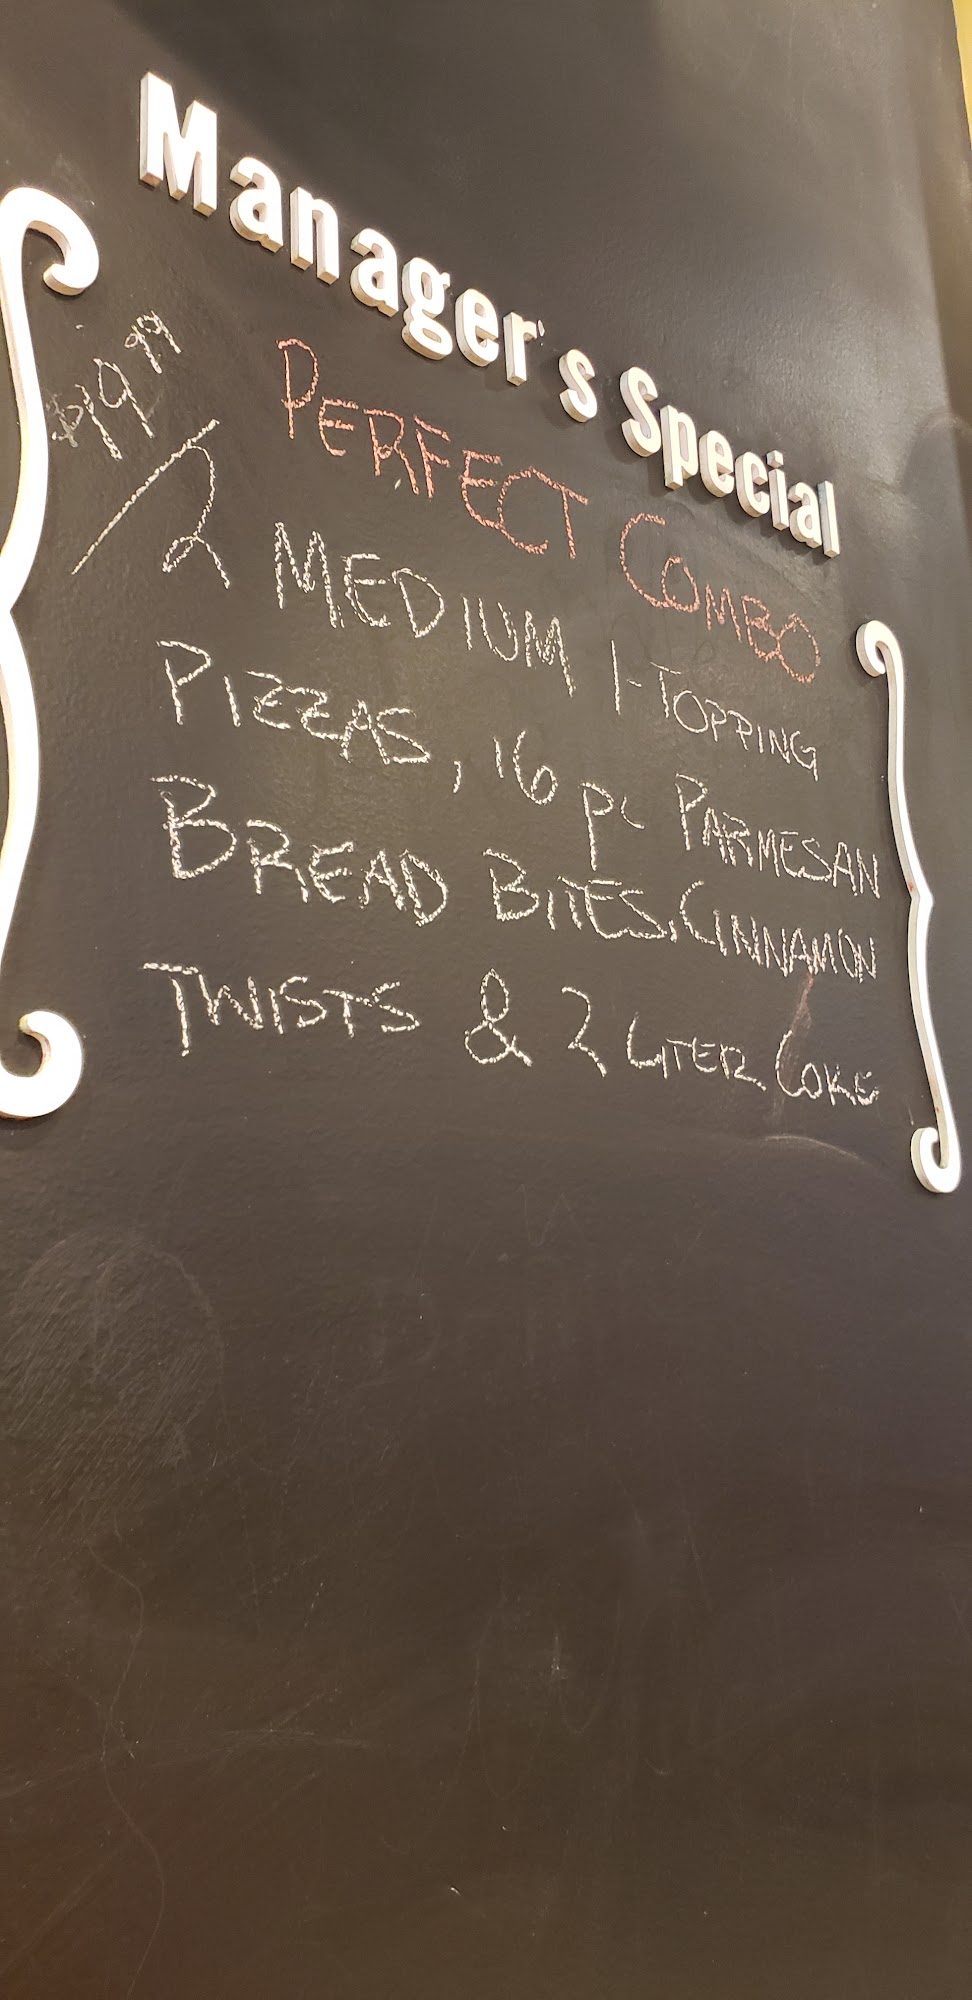 Manager's Special
$19.99
PERFECT COMBO
2 MEDIUM 1-TOPPING
PIZZAS, 16 pc PARMESAN
BREAD BITES, CINNAMON
TWISTS & 2 LITER COKE